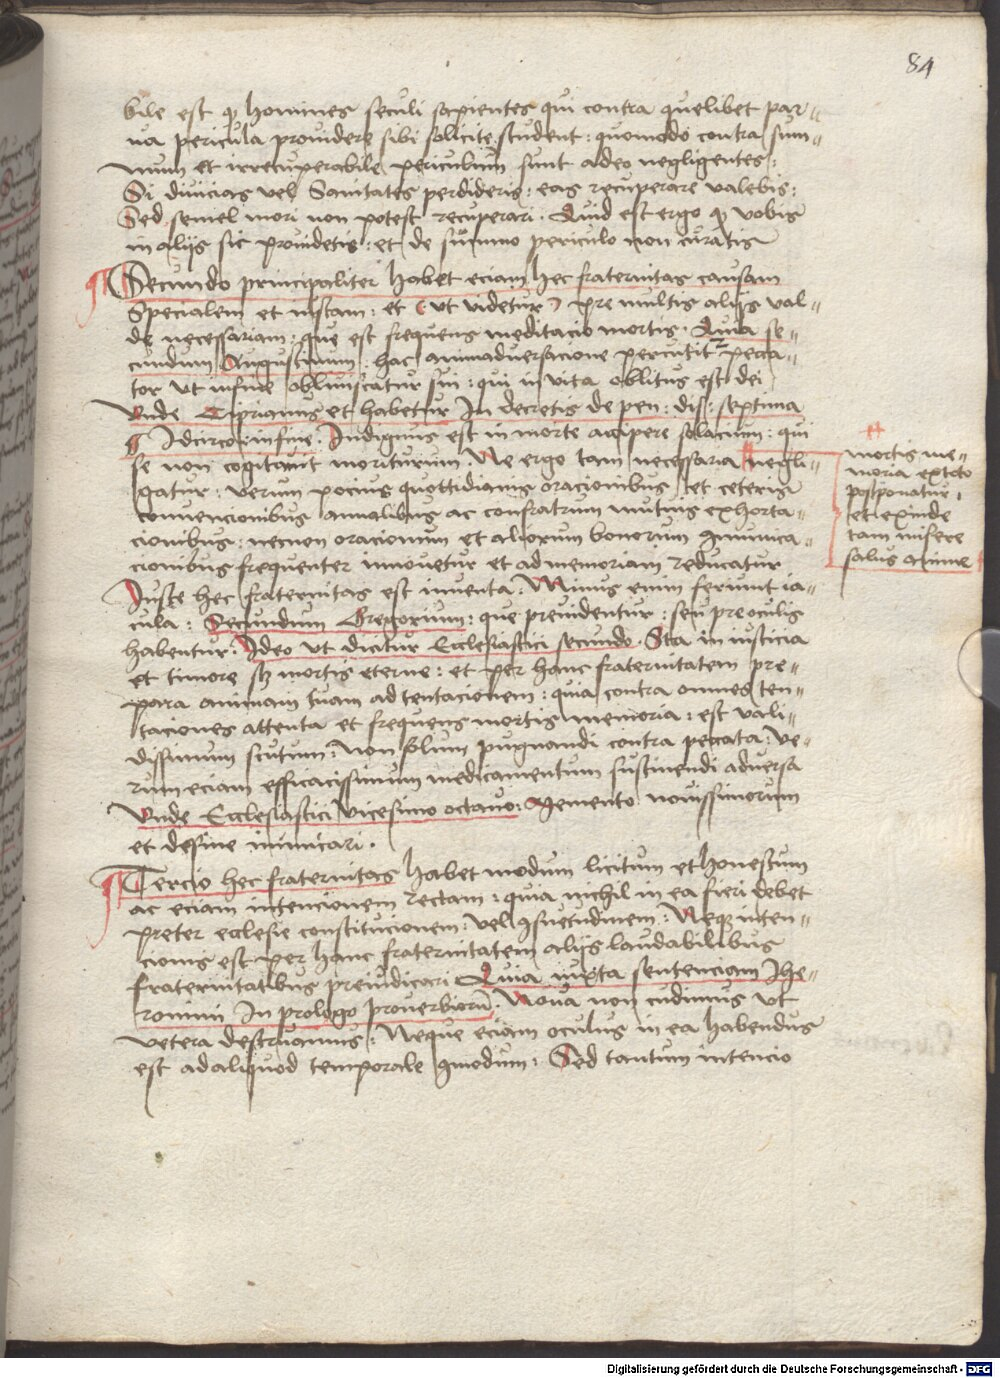 84
bile est ꝙ homines seculi sapientes qui contra quelibet par-
ua pericula prouidere sibi solicite student : quomodo contra sum-
mum et irrecuperabile periculum sunt adeo negligentes :
Si diuicias vel Sanitates perdideris : eas recuperare valebis :
Sed semel mori non potest recuperari . Quid est ergo ꝙ vobis
in alijs sic prouidetis : et de summo periculo non curatis
Secundo principaliter habet eciam hec fraternitas causam
Specialem et iustam : et ( vt videtur ) pre multis alijs val-
de necessariam : que est frequens meditacio mortis . Quia se-
cundum Augustinum . hac animaduersacione percutitur pecca-
tor vt in fine obliuiscatur sui : qui in vita oblitus est dei
Vnde Ciprianus et habetur In decretis de pen : dis : septima
Idcirco in fine . Indignus est in morte accipere solacium : qui
se non cogitauit moriturum . Ne ergo tam necessaria negli-
gatur : verum pocius quottidianis oracionibus et ceteris
conuencionibus annalibus ac confratrum mutuis exhorta-
cionibus : necnon oracionum et aliorum bonorum ꝯmunica-
cionibus frequenter innouetur et ad memoriam reducatur
mortis me-
moria ex toto
postponatur .
et exinde
tam misere
salus anime
Iuste hec fraternitas est inuenta . Minus enim feriunt ia-
cula : Secundum Gregorium : que preuidentur : seu pre oculis
habentur . Ideo vt dicitur Ecclesiastici secundo . Sta in iusticia
et timore scz mortis eterne : et per hanc fraternitatem pre-
para animam tuam ad tentacionem : quia contra omnes ten-
taciones attenta et frequens mortis memoria : est vali-
dissimum scutum : non solum pugnandi contra peccata : Ve-
rum eciam efficacissimum medicamentum sustinendi aduersa
Vnde Ecclesiastici vicesimo octauo : Memento nouissimorum
et desine inimicari .
Tercio hec fraternitas habet modum licitum et honestum
ac eciam intencionem rectam : quia nichil in ea fieri debet
preter ecclesie constitucionem : vel ꝯsuetudinem : Neqꝫ inten-
cionis est per hanc fraternitatem alijs laudabilibus
fraternitatibus preiudicari Quia iuxta sentenciam Ihe-
ronimi In prologo prouerbiorū . Noua non cudimus vt
vetera destruamus : Neque eciam oculus in ea habendus
est ad aliquod temporale ꝯmodum : Sed tantum intencio
Digitalisierung gefördert durch die Deutsche Forschungsgemeinschaft - DFG